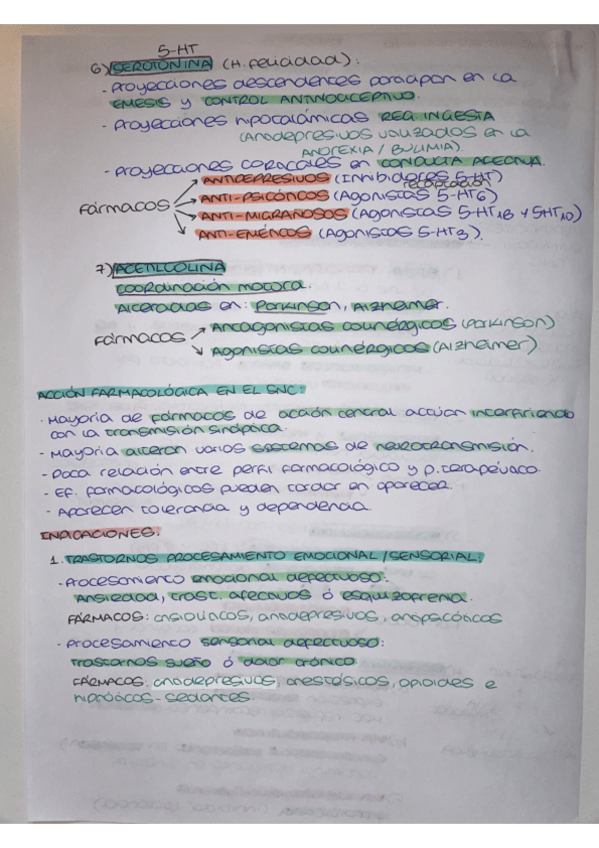 5-HT
6) SEROTONINA (H. felicidad):
- Proyecciones descendentes participan en la
EMESIS y CONTROL ANTINOCICEPTIVO.
- Proyecciones hipotalámicas REG INGESTA
(Antidepresivos utilizados en la
ANOREXIA / BULIMIA).
- Proyecciones corticales en CONDUCTA AFECTIVA.
ANTIDEPRESIVOS (Inhibidores 5-HT)
recaptación
FÁRMACOS
ANTI-PSICÓTICOS (Agonistas 5-HT6)
ANTI-MIGRAÑOSOS (Agonistas 5-HT1B y 5HT1D)
ANTI-EMÉTICOS (Agonistas 5-HT3).
7) ACETILCOLINA
Coordinación motora.
Alteradas en: Parkinson, Alzheimer.
FÁRMACOS
Antagonistas colinérgicos (Parkinson)
Agonistas colinérgicos (Alzheimer).
ACCIÓN FARMACOLÓGICA EN EL SNC:
· Mayoría de fármacos de acción central actúan interfiriendo
con la transmisión sináptica.
- Mayoría alteran varios sistemas de neurotransmisión.
- Poca relación entre perfil farmacológico y p. terapéutico.
- Ef. farmacológicos pueden tardar en aparecer.
- Aparecen tolerancia y dependencia.
INDICACIONES:
1. TRASTORNOS PROCESAMIENTO EMOCIONAL/SENSORIAL:
- Procesamiento emocional defectuoso:
Ansiedad, trast. afectivos ó esquizofrenia.
FÁRMACOS: ansiolíticos, antidepresivos, antipsicóticos
- Procesamiento sensorial defectuoso:
trastornos sueño ó dolor crónico.
FÁRMACOS: antidepresivos, anestésicos, opioides e
hipnóticos-sedantes.